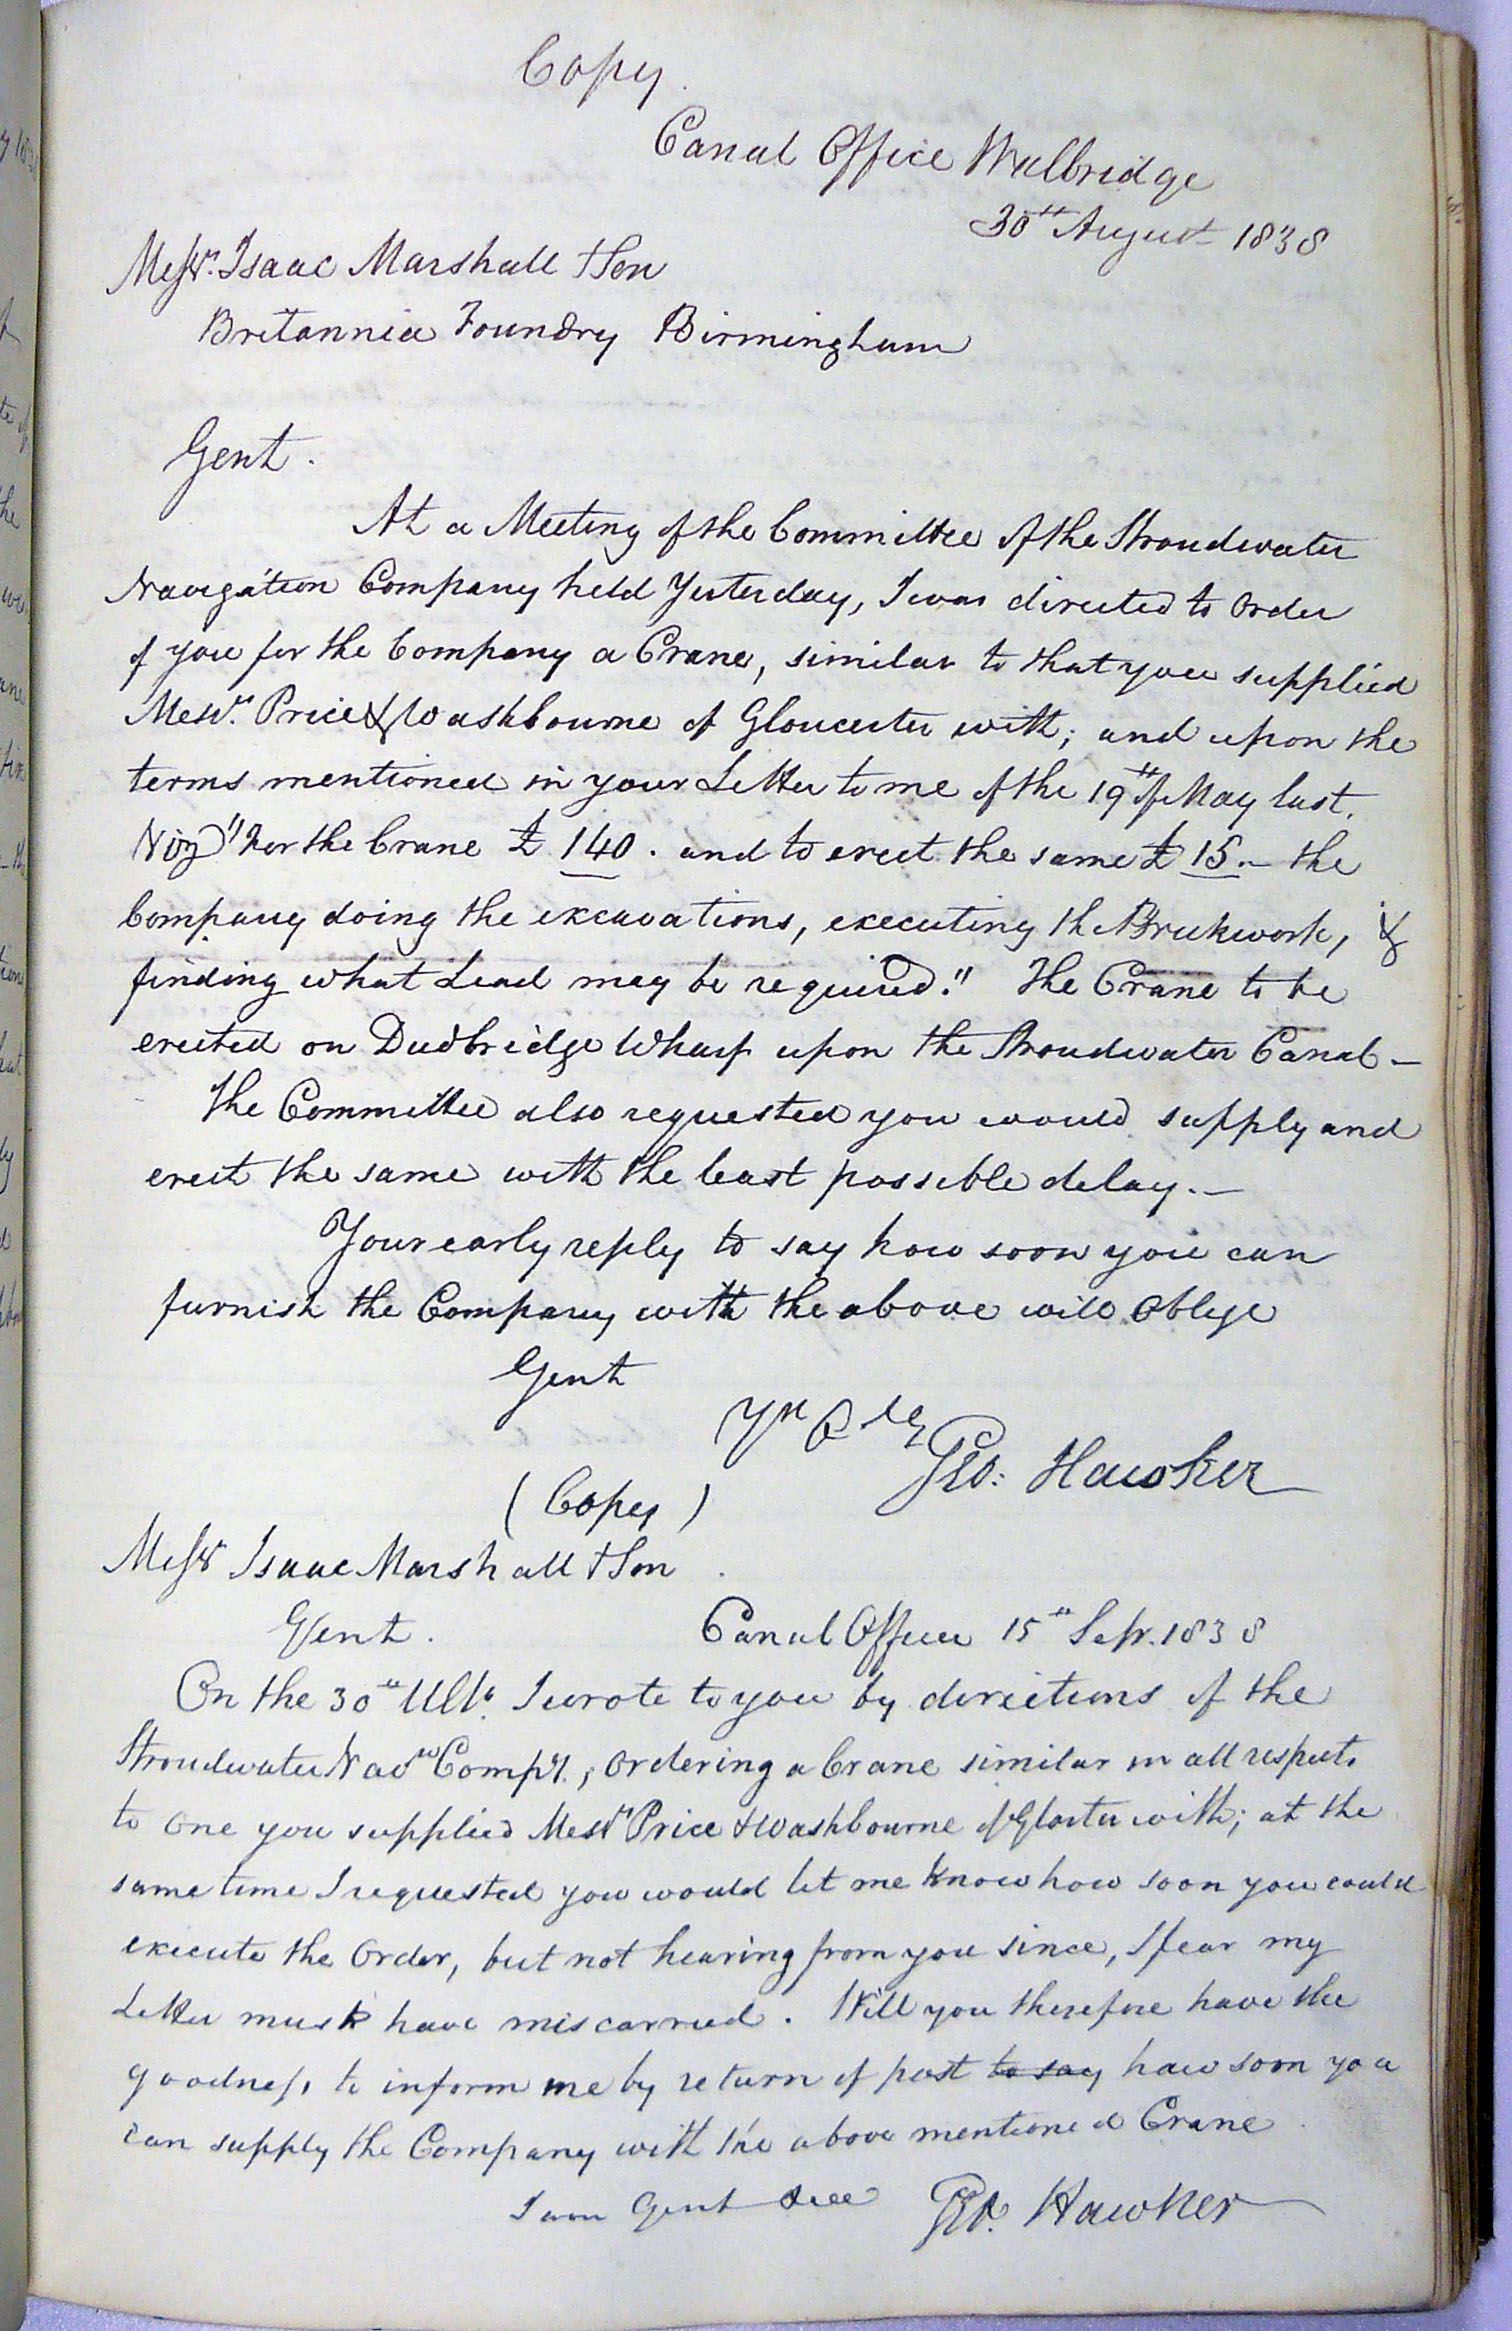 Copy.
Canal Office Wallbridge
30th August 1838
Messrs. Isaac Marshall & Son
Britannia Foundry Birmingham
Gent.
At a Meeting of the Committee of the Stroudwater
Navigation Company held Yesterday, I was directed to Order
of you for the Company a Crane, similar to that you supplied
Messrs. Price & Washbourne of Gloucester with; and upon the
terms mentioned in your Letter to me of the 19th of May last.
Viz "For the Crane £ 140. and to erect the same £ 15.- the
Company doing the excavations, executing the Brickwork, &
finding what Lead may be required." The Crane to be
erected on Dudbridge Wharf upon the Stroudwater Canal -
The Committee also requested you would supply and
erect the same with the least possible delay.-
Your early reply to say how soon you can
furnish the Company with the above will Oblige
Gent
Yr
Geo: Hawker
(Copy)
Messrs Isaac Marshall & Son
Gent.
Canal Office 15th Sepr. 1838
On the 30th Ulto. I wrote to you by directions of the
Stroudwater Navn Compy., Ordering a Crane similar in all respects
to one you supplied Messrs Price & Washbourne of Gloster with; at the
same time I requested you would let me know how soon you could
execute the Order, but not hearing from you since, I fear my
Letter must have miscarried. Will you therefore have the
goodness to inform me by return of post to say how soon you
can supply the Company with the above mentioned Crane
I am Gent
Geo. Hawker